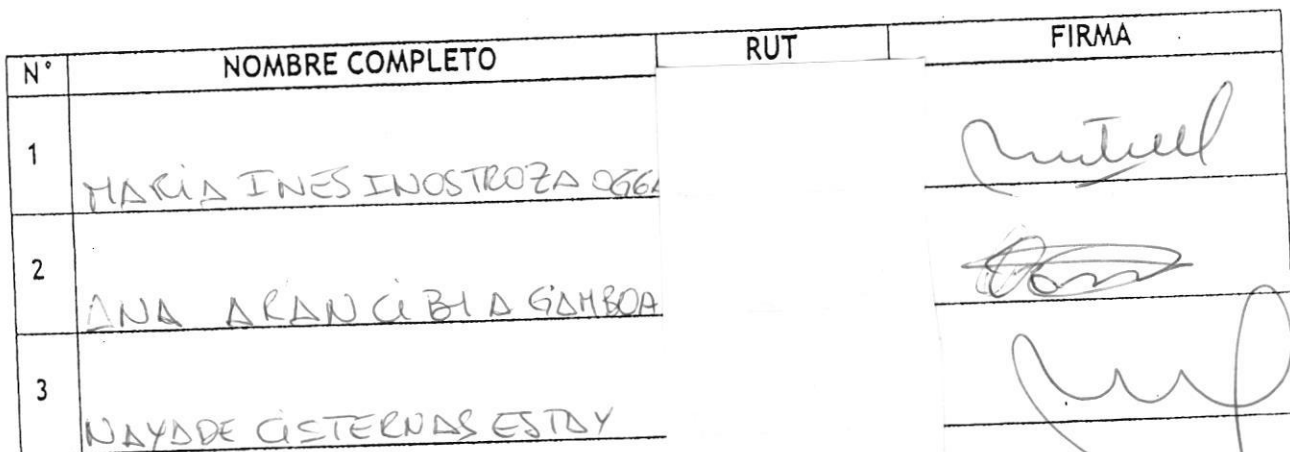 N° NOMBRE COMPLETO RUT FIRMA
1 MARIA INES INOSTROZA
2 ANA ARANCIBIA GAMBOA
3 NAYADE CISTERNAS ESTAY